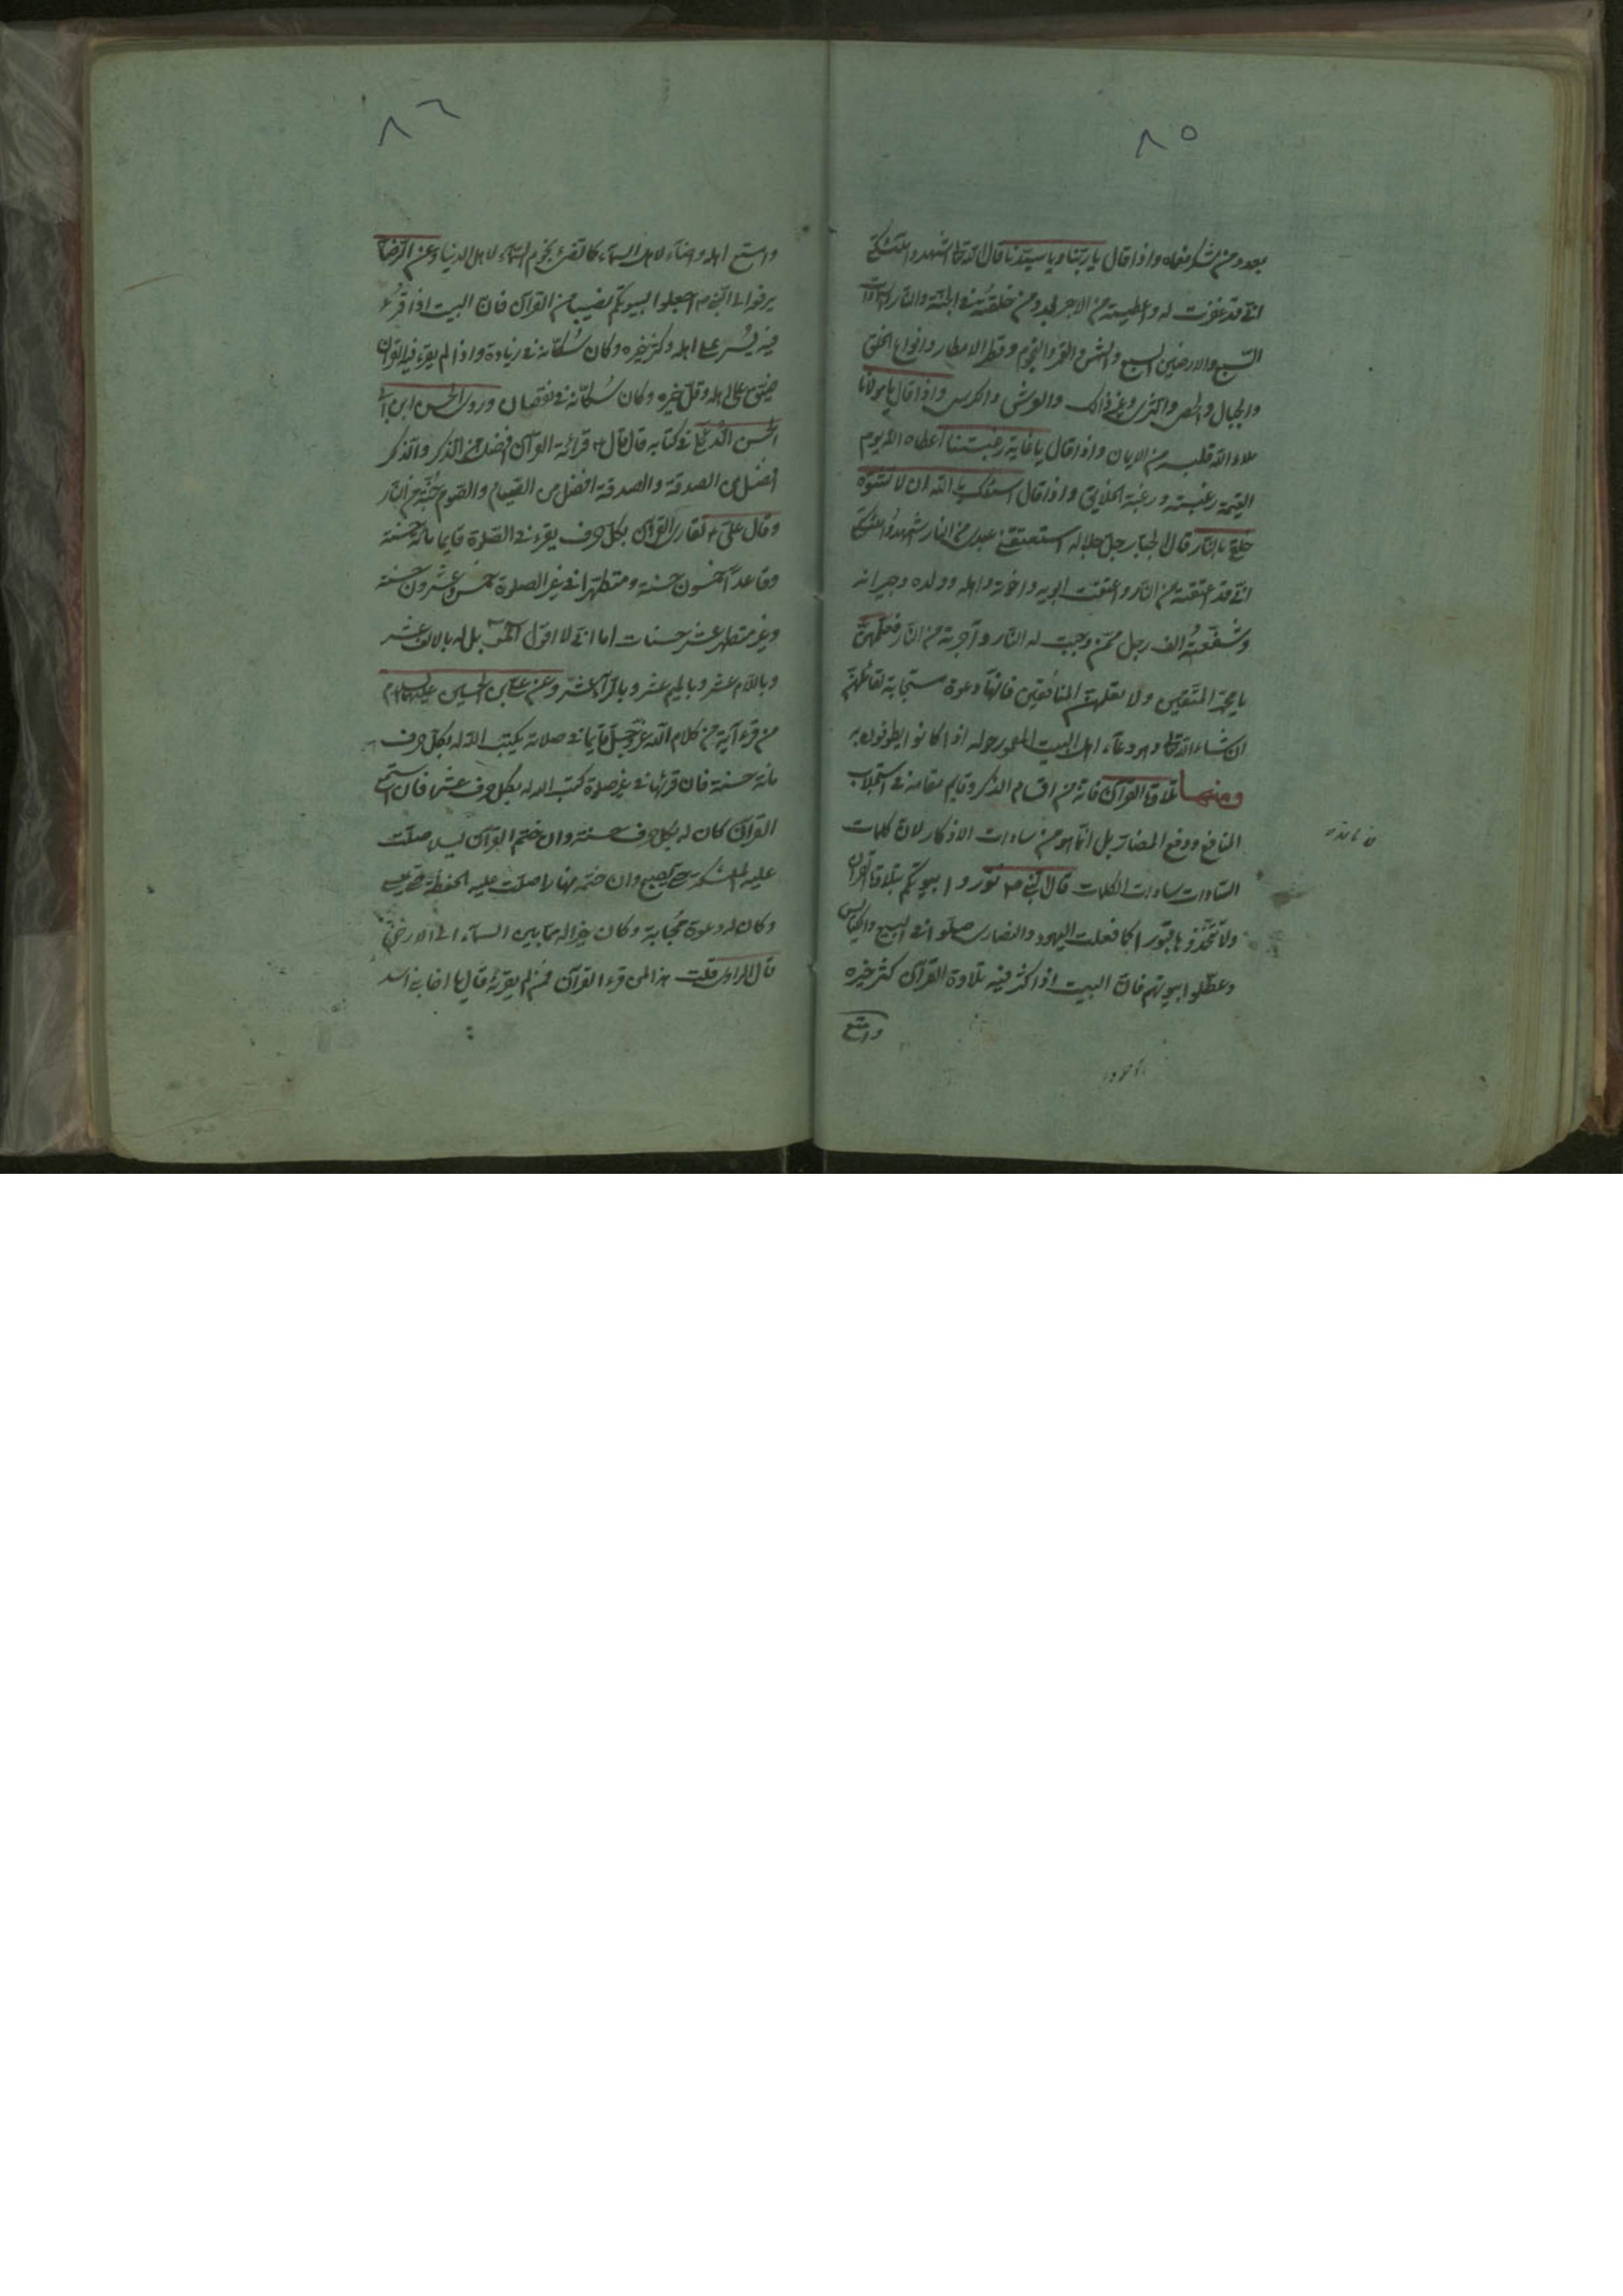 ٨٥
بعدد من شكر نعماه واذا قال يا ربنا ويا سيدنا قال الله تعا اشهدوا ملائكتي
اني قد غفرت له واعطيته من الاجر بعدد من خلقته في الجنة والنار والسموات
السبع والارضين السبع والشمس والقمر والنجوم وقطر الامطار وانواع الخلق
والجبال والحصى والثرى وغير ذالك والعرش والكرسي واذا قال يا مولانا
ملاء الله قلبه من الايمان واذا قال يا غاية رغبتنا اعطاه الله يوم
القيمة رغبته ورغبة الخلايق واذا قال اسئلك يا الله ان لا تشوه
خلقي بالنار قال الجبار جل جلاله استعتقني عبدي من النار اشهدوا ملائكتي
اني قد اعتقته من النار واعتقت ابويه واخوته واهله وولده وجيرانه
وشفعته الف رجل ممن وجبت له النار وآجرته من النار فعلمهن
يا محمد المتقين ولا تعلمهن المنافقين فانها دعوة مستجابة لقائلهن
ان شاء الله تعا وهو دعاء اهل البيت المعمور حوله اذا كانوا يطوفون به
ومنها تلاوة القرآن فانه من اقسام الذكر وقايم مقامه في استجلاب
المنافع ودفع المضار بل انما هو من سادات الاذكار لان كلمات
السادات سادات الكلمات قال النبي ص نوروا بيوتكم بتلاوة القرآن
ولا تتخذوها قبورا كما فعلت اليهود والنصارى صلوا في البيع والكنايس
وعطلوا بيوتهم فان البيت اذا كثر فيه تلاوة القرآن كثر خيره
واتسع
٨٦
واتسع اهله واضاء لاهل السماء كما تضئ نجوم السماء لاهل الدنيا وعن الرضا
يرفعه الى النبي ص اجعلوا لبيوتكم نصيبا من القرآن فان البيت اذا قرء
فيه يسر على اهله وكثر خيره وكان سكانه في زيادة واذا لم يقرء فيه القرآن
ضيق على اهله وقل خيره وكان سكانه في نقصان وروى الحسن ابن ابي
الحسن الديلمي في كتابه قال قال ع قرائة القرآن افضل من الذكر والذكر
افضل من الصدقة والصدقة افضل من الصيام والصوم جنة من النار
وقال علي ع لقارى القرآن بكل حرف يقرء في الصلوة قايما مائة حسنة
وقاعدا خمسون حسنة ومتطهرا في غير الصلوة خمس وعشرون حسنة
وغير متطهر عشر حسنات اما اني لا اقول المر بل له بالالف عشر
وباللام عشر وبالميم عشر وبالراء عشر وعن علي بن الحسين عليهما السلام
من قرء آية من كلام الله عز وجل قايما في صلاته يكتب الله له بكل حرف
مائة حسنة فان قرئها في غير صلوة كتب الله له بكل حرف عشرا فان استمع
القرآن كان له بكل حرف حسنة وان ختم القرآن ليلا صلت
عليه الملئكة حتى يصبح وان ختمه نهارا صلت عليه الحفظة حتى يمسي
وكان له دعوة مجابة وكان خيرا له مما بين السماء الى الارض
قال الراوى قلت هذا لمن قرء القرآن فمن لم يقرئه قال يا اخا بني اسد